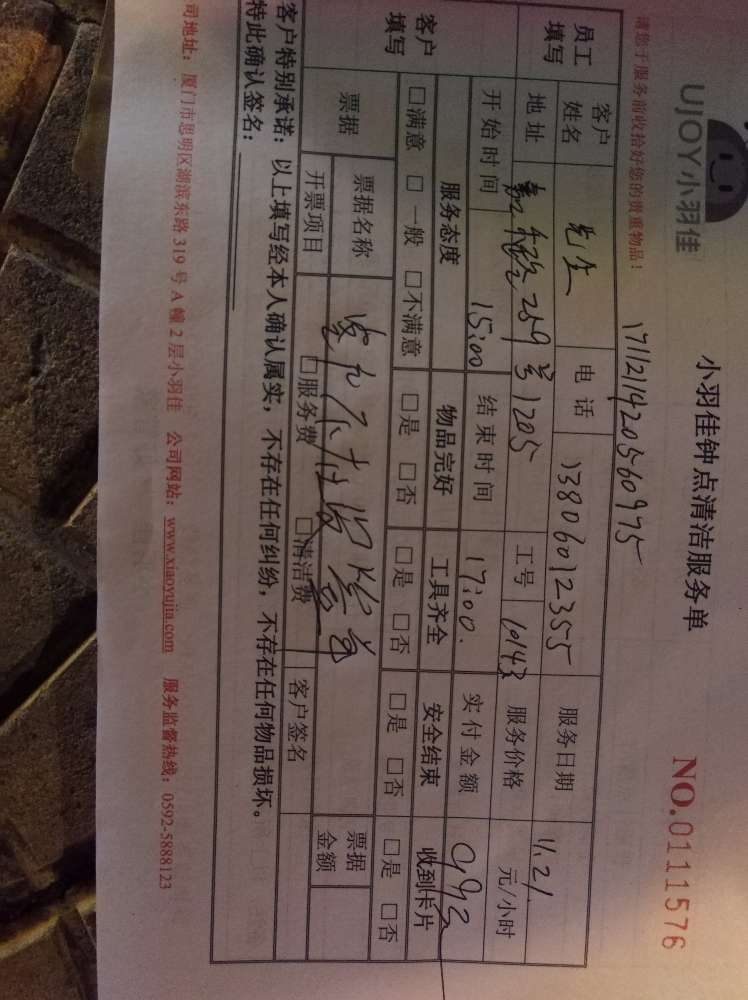 UJOY小羽佳
小羽佳钟点清洁服务单
NO.0111576
请您于服务前收拾好您的贵重物品！
17112142056 0975
员工填写
客户姓名 先生 电话 13806012355 服务日期 11.21
地址 259号1205 工号 10143 服务价格 元/小时
开始时间 15:00 结束时间 17:00. 实付金额
客户填写
服务态度 物品完好 工具齐全 安全结束 收到卡片
□满意 □一般 □不满意 □是 □否 □是 □否 □是 □否 □是 □否
票据 票据名称 票据金额
开票项目 □服务费 □清洁费 客户签名
客户特别承诺：以上填写经本人确认属实，不存在任何纠纷，不存在任何物品损坏。
特此确认签名：
司地址：厦门市思明区湖滨东路319号A幢2层小羽佳 公司网站：www.xiaoyujia.com 服务监督热线：0592-5888123